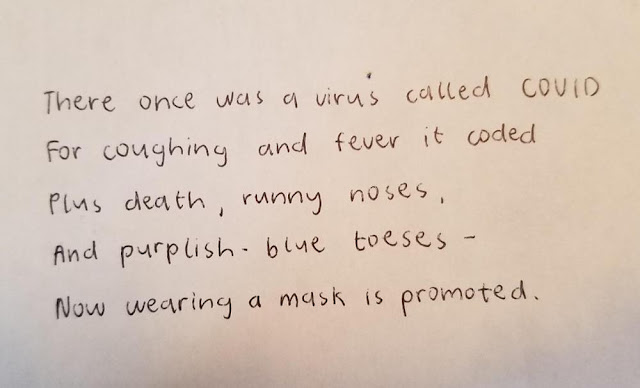 There once was a virus called COVID
For coughing and fever it coded
Plus death, runny noses,
And purplish-blue toeses -
Now wearing a mask is promoted.